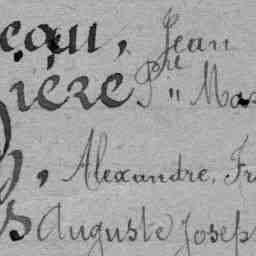 eau, Jean
ière Pre " Mas
, Alexandre, Fr
s Auguste Josep